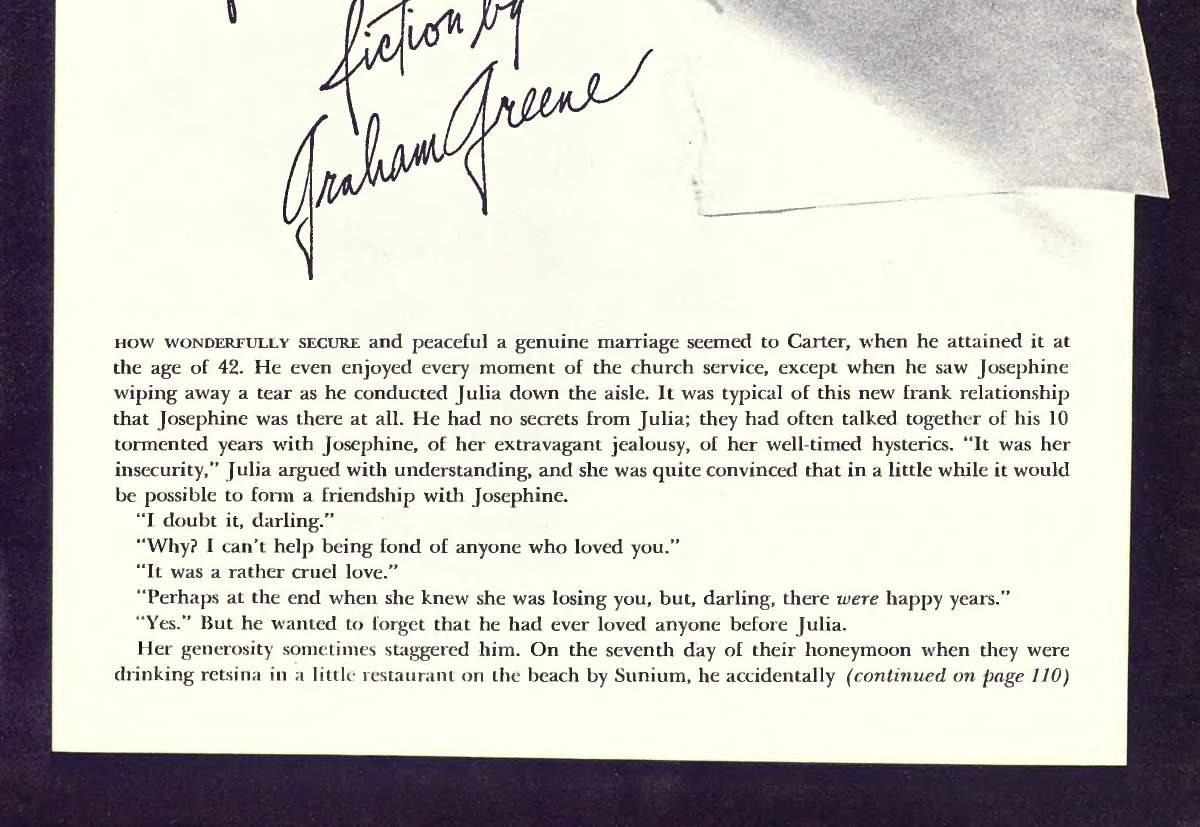 fiction by
Graham Greene
HOW WONDERFULLY SECURE and peaceful a genuine marriage seemed to Carter, when he attained it at
the age of 42. He even enjoyed every moment of the church service, except when he saw Josephine
wiping away a tear as he conducted Julia down the aisle. It was typical of this new frank relationship
that Josephine was there at all. He had no secrets from Julia; they had often talked together of his 10
tormented years with Josephine, of her extravagant jealousy, of her well-timed hysterics. “It was her
insecurity,” Julia argued with understanding, and she was quite convinced that in a little while it would
be possible to form a friendship with Josephine.
“I doubt it, darling.”
“Why? I can't help being fond of anyone who loved you.”
“It was a rather cruel love.”
“Perhaps at the end when she knew she was losing you, but, darling, there were happy years.”
“Yes.” But he wanted to forget that he had ever loved anyone before Julia.
Her generosity sometimes staggered him. On the seventh day of their honeymoon when they were
drinking retsina in a little restaurant on the beach by Sunium, he accidentally (continued on page 110)